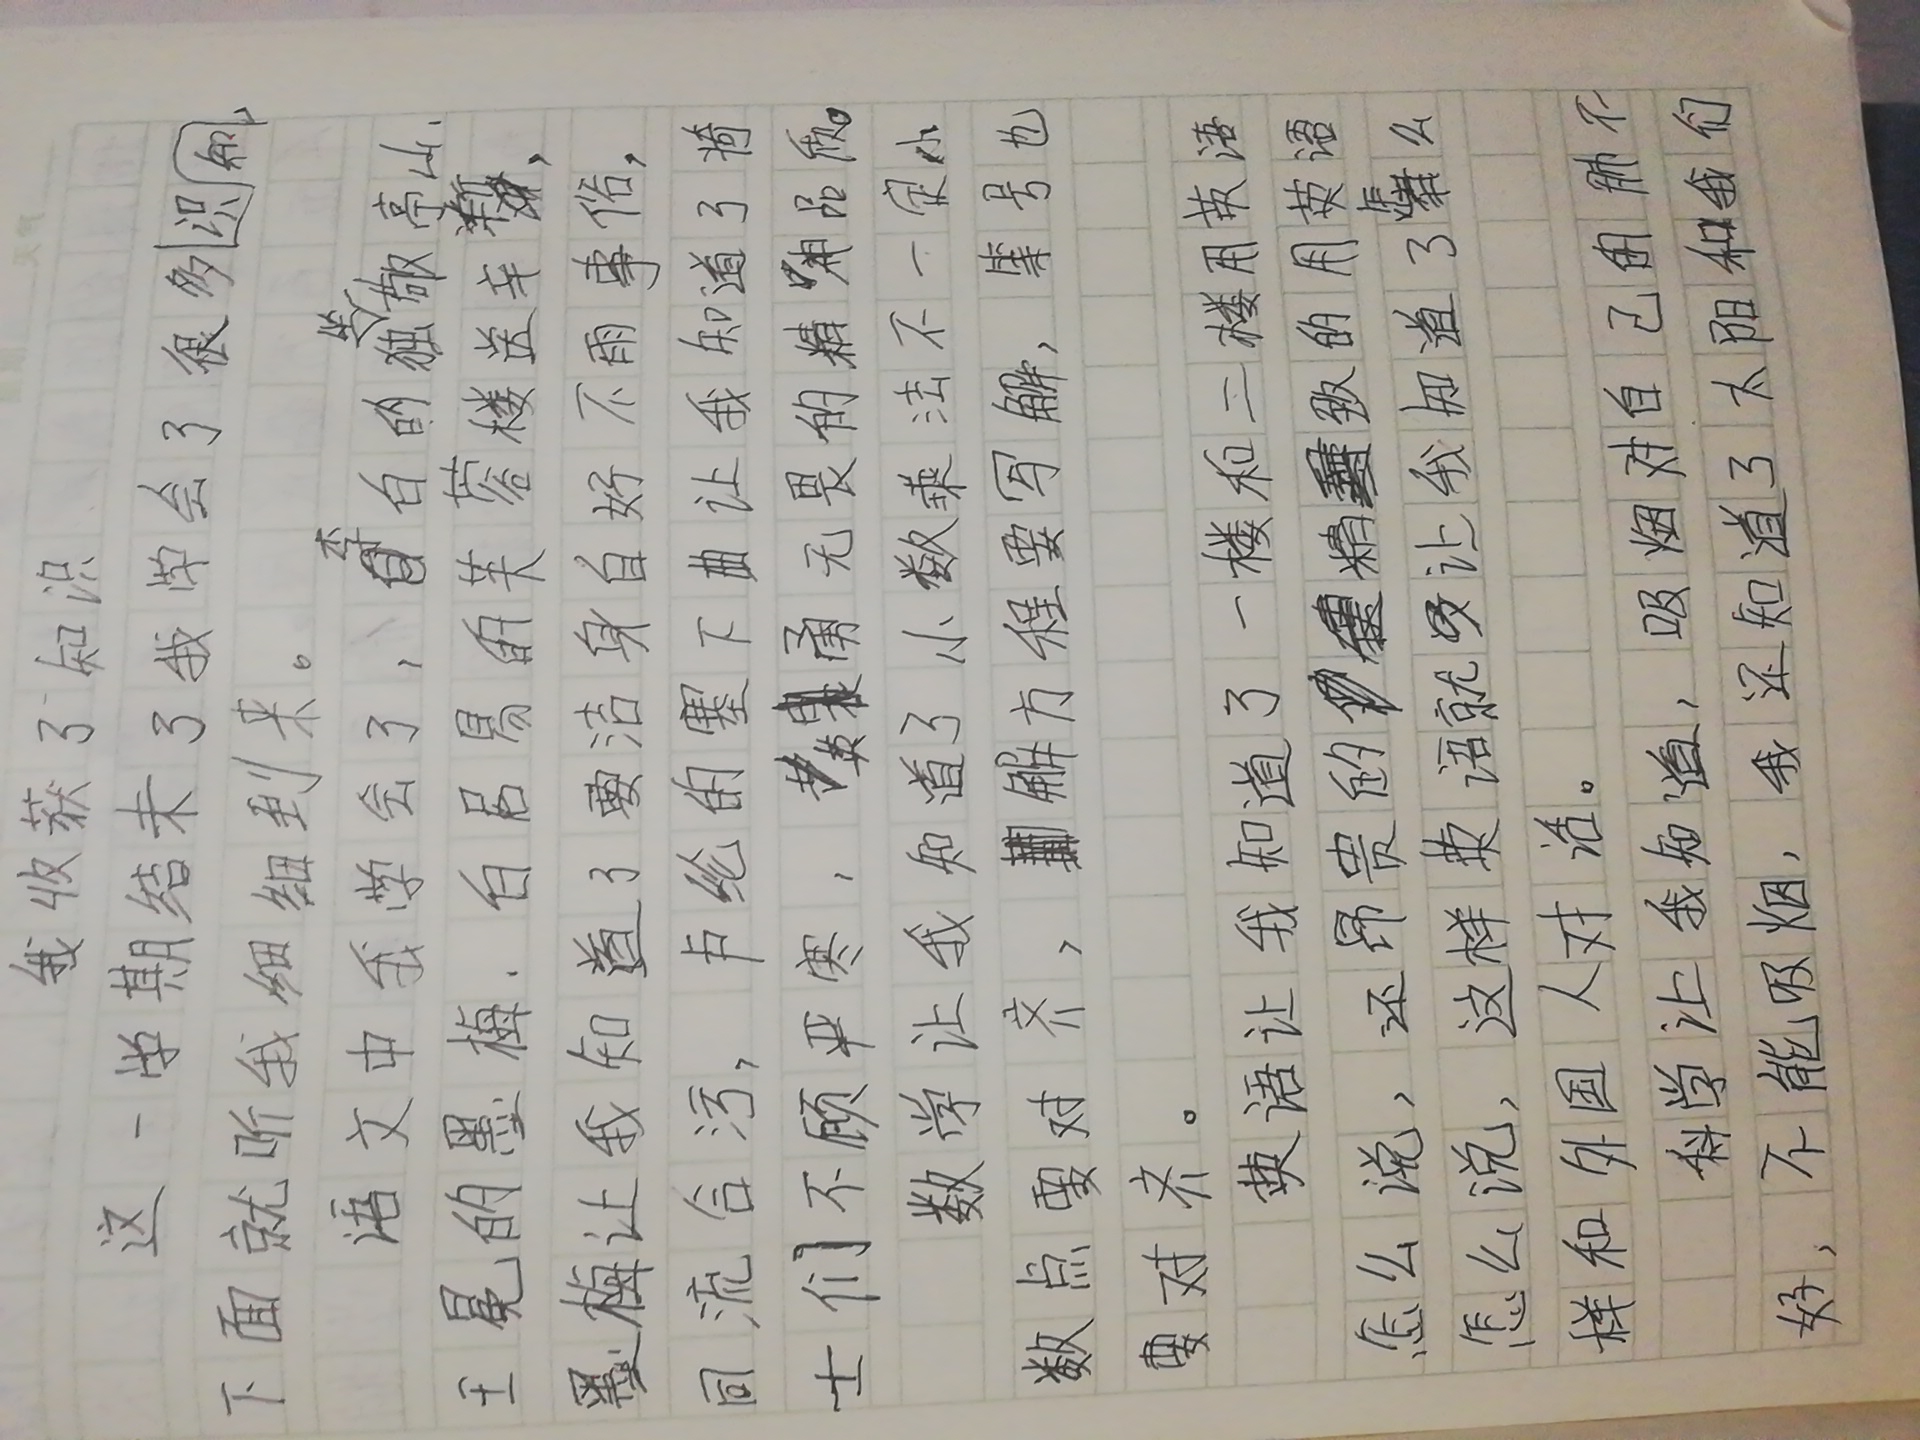 我收获了知识
这一学期结未了我学会了很多识知,
下面就听我细细到来。
语文中我学会了,李白的独坐敬亭山、
王冕的墨梅、白居易的芙蓉楼送辛渐,
墨梅让我知道了要洁身自好不雨事俗,
同流合污,卢纶的塞下曲让我知道了将
士们不顾严寒,勇无畏的精品质。
数学让我知道了小数乘法不一定小
数点要对齐,解方程要写解,等号也
要对齐。
英语让我知道了一楼和二楼用英语
怎么说,还昂贵的精致的用英语
怎么说,这样英语就让我知道了怎么
样和外国人对话。
科学让我知道,吸烟对自己的肺不
好,不能吸烟,我还知道了太阳和我们